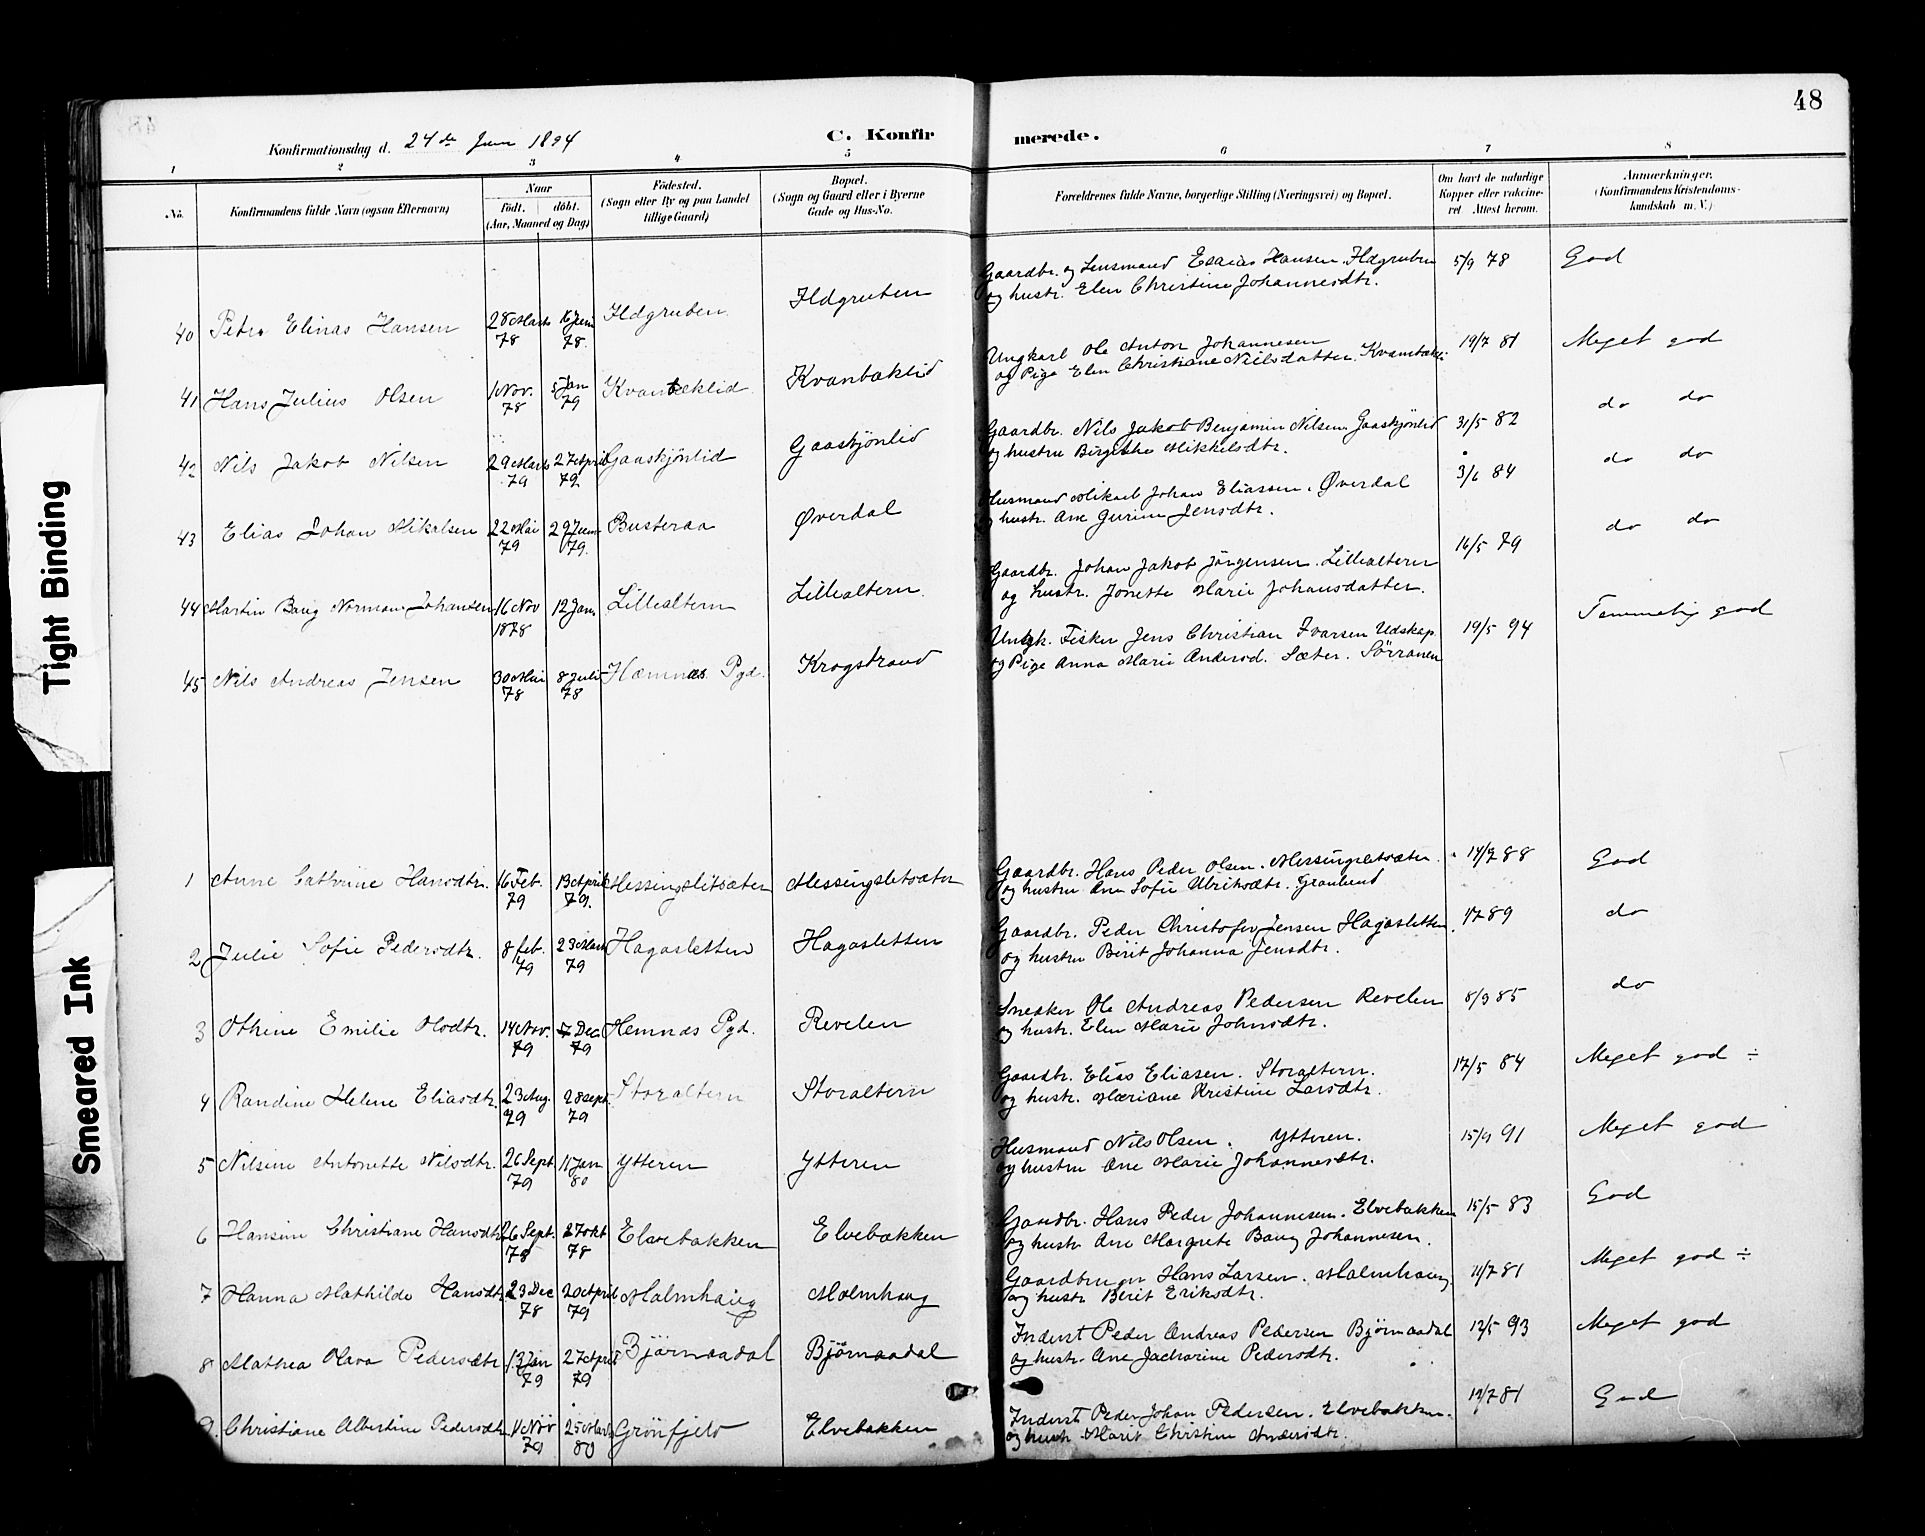 48
Konfirmationsdag d. 24de Juni 1894
C. Konfirmerede.
1 2 3 4 5 6 7 8
No.
Konfirmandens fulde Navn (ogsaa Efternavn)
Naar
Födt. döbt.
(Aar, Maaned og Dag)
Födested.
(Sogn eller By og paa Landet
tillige Gaard)
Bopæl.
(Sogn og Gaard eller i Byerne
Gade og Hus-No.
Forældrenes fulde Navne, borgerlige Stilling (Næringsvei) og Bopæl.
Om havt de naturlige
Kopper eller vakcine-
ret Attest herom.
Anmærkninger.
(Konfirmandens Kristendoms-
kundskab m. V.)
40 Petra Elinas Hansen 28 Marts 78 16 Juni 78. Ildgruben. Ildgruben
Gaardbr. og Lensmand Esaias Hansen. Ildgruben 5/9 78 God
og hustr. Elen Christine Johannesdtr.
41 Hans Julius Olsen 1 Nov. 78 5 Jan 79 Kvanbæklid Kvanbæklid
Ungkarl Ole Anton Johannesen 19/7 81 Meget god
og Pige Elen Christiane Nielsdatter. Kvanbækli
42 Nils Jakob Nilsen 29 Marts 79 27 April 79 Gaaskjönlid Gaaskjönlid
Gaardbr. Nils Jakob Benjamin Nilsen Gaaskjönlid 31/5 82 do do
og hustru Birgithe Mikkelsdtr.
43 Elias Johan Mikalsen 22 Mai 79 29 Juni 79. Busteraa Øverdal
Husmand Mikael Johan Eliassen. Øverdal 3/6 84 do do
og hustr. Ane Gurine Jensdtr.
44 Martin Baug Norman Johansen 16 Nov 1878 12 Jan. Lillealtern Lillealtern.
Gaardbr. Johan Jakob Jörgensen. Lillealtern 16/5 79 do do
og hustr. Jonette Marie Johansdatter.
45 Nils Andreas Jensen 30 Mai 78 8 Juli 78 Hæmnæs Pgd. Krogstrand
Ungk. Fisker Jens Christian Ivarsen Udskap. 19/5 94 Temmelig god
og Pige Anna Marie Andersd. Sæter. Sörranen
1 Anne Cathrine Hansdtr. 16 Feb. 79 13 April 79. Messingslitsæter Messingsletsæter
Gaardbr. Hans Peder Olsen. Messingsletsæter. 14/9 88 God
og hustru Ane Sofie Ulriksdtr. Granlund
2 Julie Sofie Pedersdtr. 8 feb. 79 23 Marts 79 Hagasletten Hagasletten
Gaardbr. Peder Christofer Jensen Hagasletten. 89 do
og hustru Berit Johanna Jensdtr.
3 Othine Emilie Olsdtr. 14 Nov. 79 7 Dec. 79 Hemnæs Pgd. Revelen
Snedker Ole Andreas Pedersen Revelen 8/9 85 do
og hustr. Elen Marie Johnsdtr.
4 Randine Helene Eliasdtr. 23 Aug. 79 28 sept. 79 Storaltern Storaltern
Gaardbr. Elias Eliasen. Storaltern. 17/5 84 Meget god ÷
og hustr. Mariane Kristine Larsdtr.
5 Nilsine Antonette Nilsdtr. 26 Sept 79 11 Jan 80 Ytteren Ytteren
Husmand Nils Olsen. Ytteren. 15/9 91 Meget god
og hustru Ane Marie Johannesdtr.
6 Hansine Christiane Hansdtr. 26 Sept. 78 27 okt 78 Elvebakken Elvebakken
Gaardbr. Hans Peder Johannesen. Elvebakken 15/5 83 God
og hustr Ane Margrete Baug Johannesen.
7 Hanna Mathilde Hansdtr 23 Dec 78 20 April 79 Malmhaug Malmhaug
Gaardbruger Hans Larsen. Malmhaug. 11/7 81 Meget god ÷
og hustr Berit Eriksdtr.
8 Mathea Olava Pedersdtr 13 Jan 79 27 April 79 Björnaadal Bjørnaadal
Inderst Peder Andreas Pedersen Bjørnaadal 12/5 93 Meget god
og hustr. Ane Jacharine Pedersdtr.
9. Christiane Albertine Pedersdtr 11 Nov 79 25 Marts 80 Grönfjeld Elvebakken
Inderst Peder Johan Pedersen. Elvebakken. 19/7 81 God
og hustr Marit Christine Andersdtr.
Tight Binding
Smeared Ink